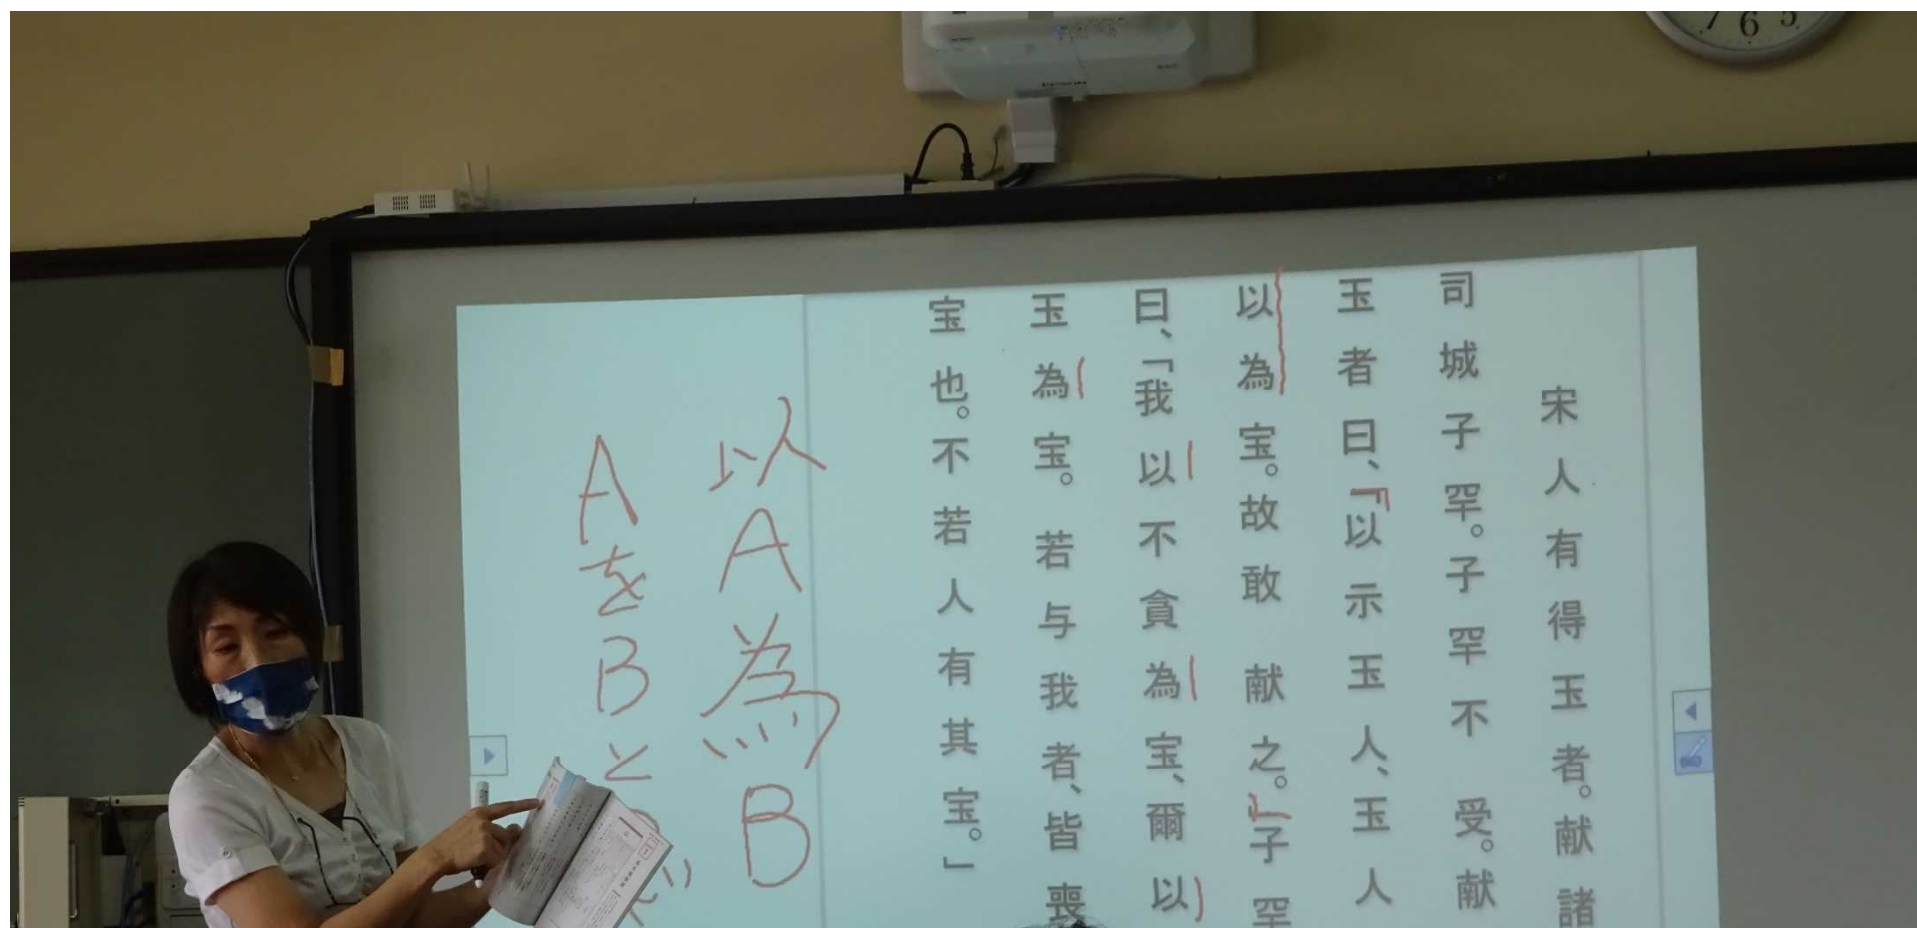 宋人有得玉者。献諸
司城子罕。子罕不受。献
玉者曰、「以示玉人、玉人
以為宝。故敢献之。」子罕
曰、「我以不貪為宝、爾以
玉為宝。若与我者、皆喪
宝也。不若人有其宝。」
以A為B
AをBと
7 6 5